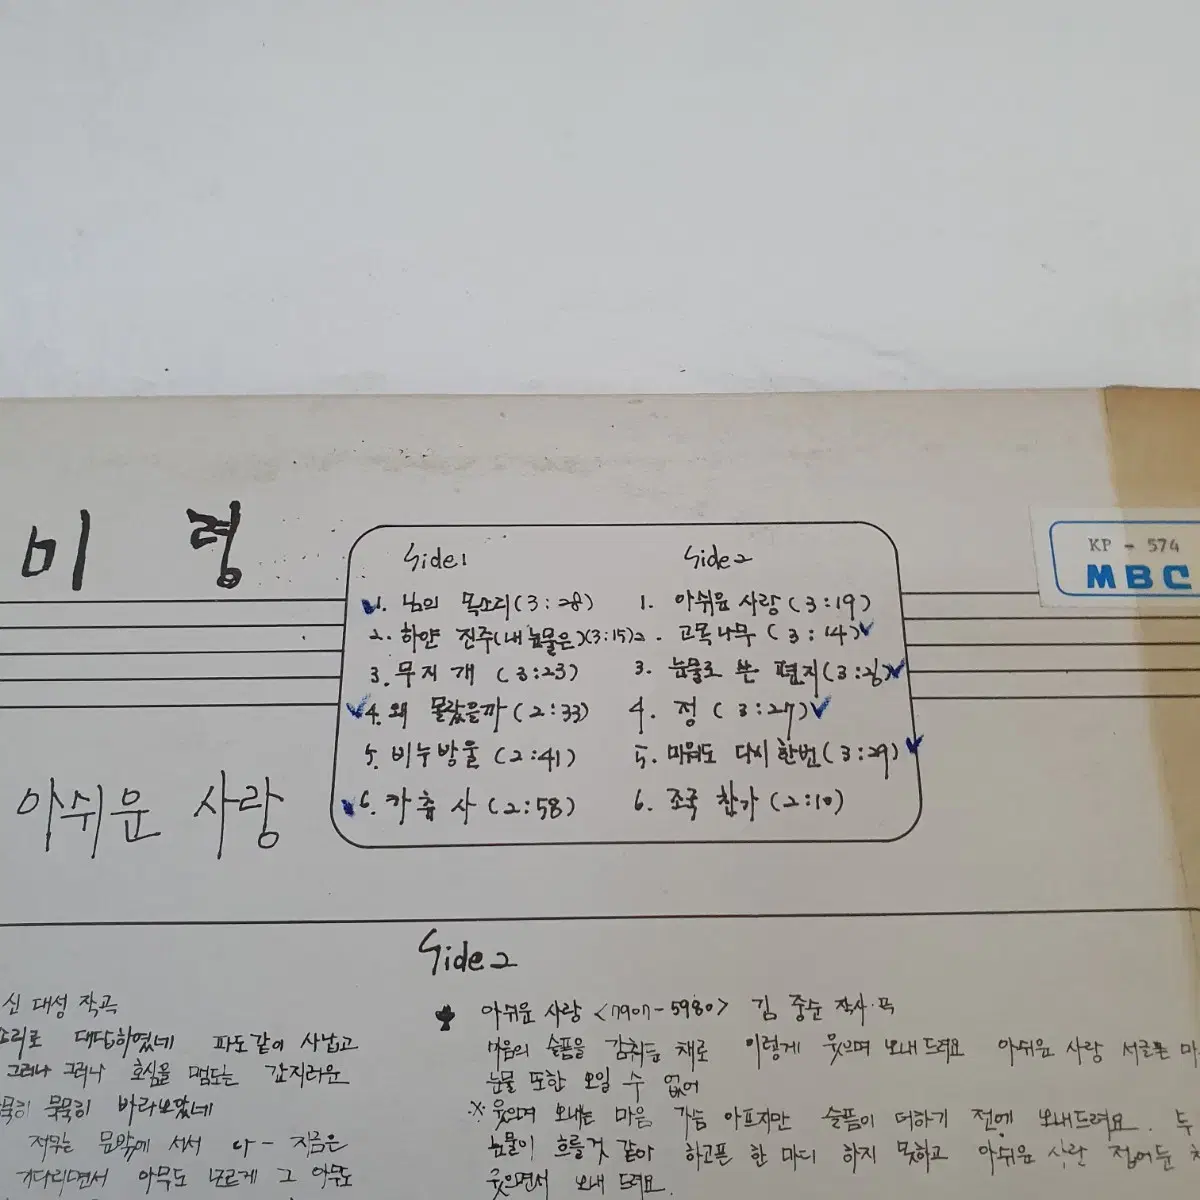 미 령
KP - 574
MBC
Side 1
1. 님의 목소리(3:28)
2. 하얀 진주(내 눈물은)(3:15)
3. 무지개 (3:23)
4. 왜 몰랐을까(2:33)
5. 비누방울 (2:41)
6. 카츄사 (2:58)
Side 2
1. 아쉬운 사랑(3:19)
2. 고목나무 (3:14)
3. 눈물로 쓴 편지
4. 정 (3:27)
5. 미워도 다시 한번(3:29)
6. 조국 찬가(2:10)
아쉬운 사랑
신 대성 작곡
소리로 대답하였네 파도같이 사납고
그러나 그러나 호심을 맴도는 간지러운
묵묵히 바라보았네
저무는 문악에 서서 나- 지금은
기다리면서 아무도 모르게 그 아무도
Side 2
아쉬운 사랑 <7907-5980> 김 중순 작사·곡
마음의 슬픔을 감춰둔 채로 이렇게 웃으며 보내드려요 아쉬운 사랑 서글픈
눈물 또한 보일 수 없어
※ 웃으며 보내는 마음 가슴 아프지만 슬픔이 더하기 전에 보내드려요. 두
눈물이 흐를것 같아 하고픈 한 마디 하지 못하고 아쉬운 사랑 접어둔 채
웃으면서 보내 드려요